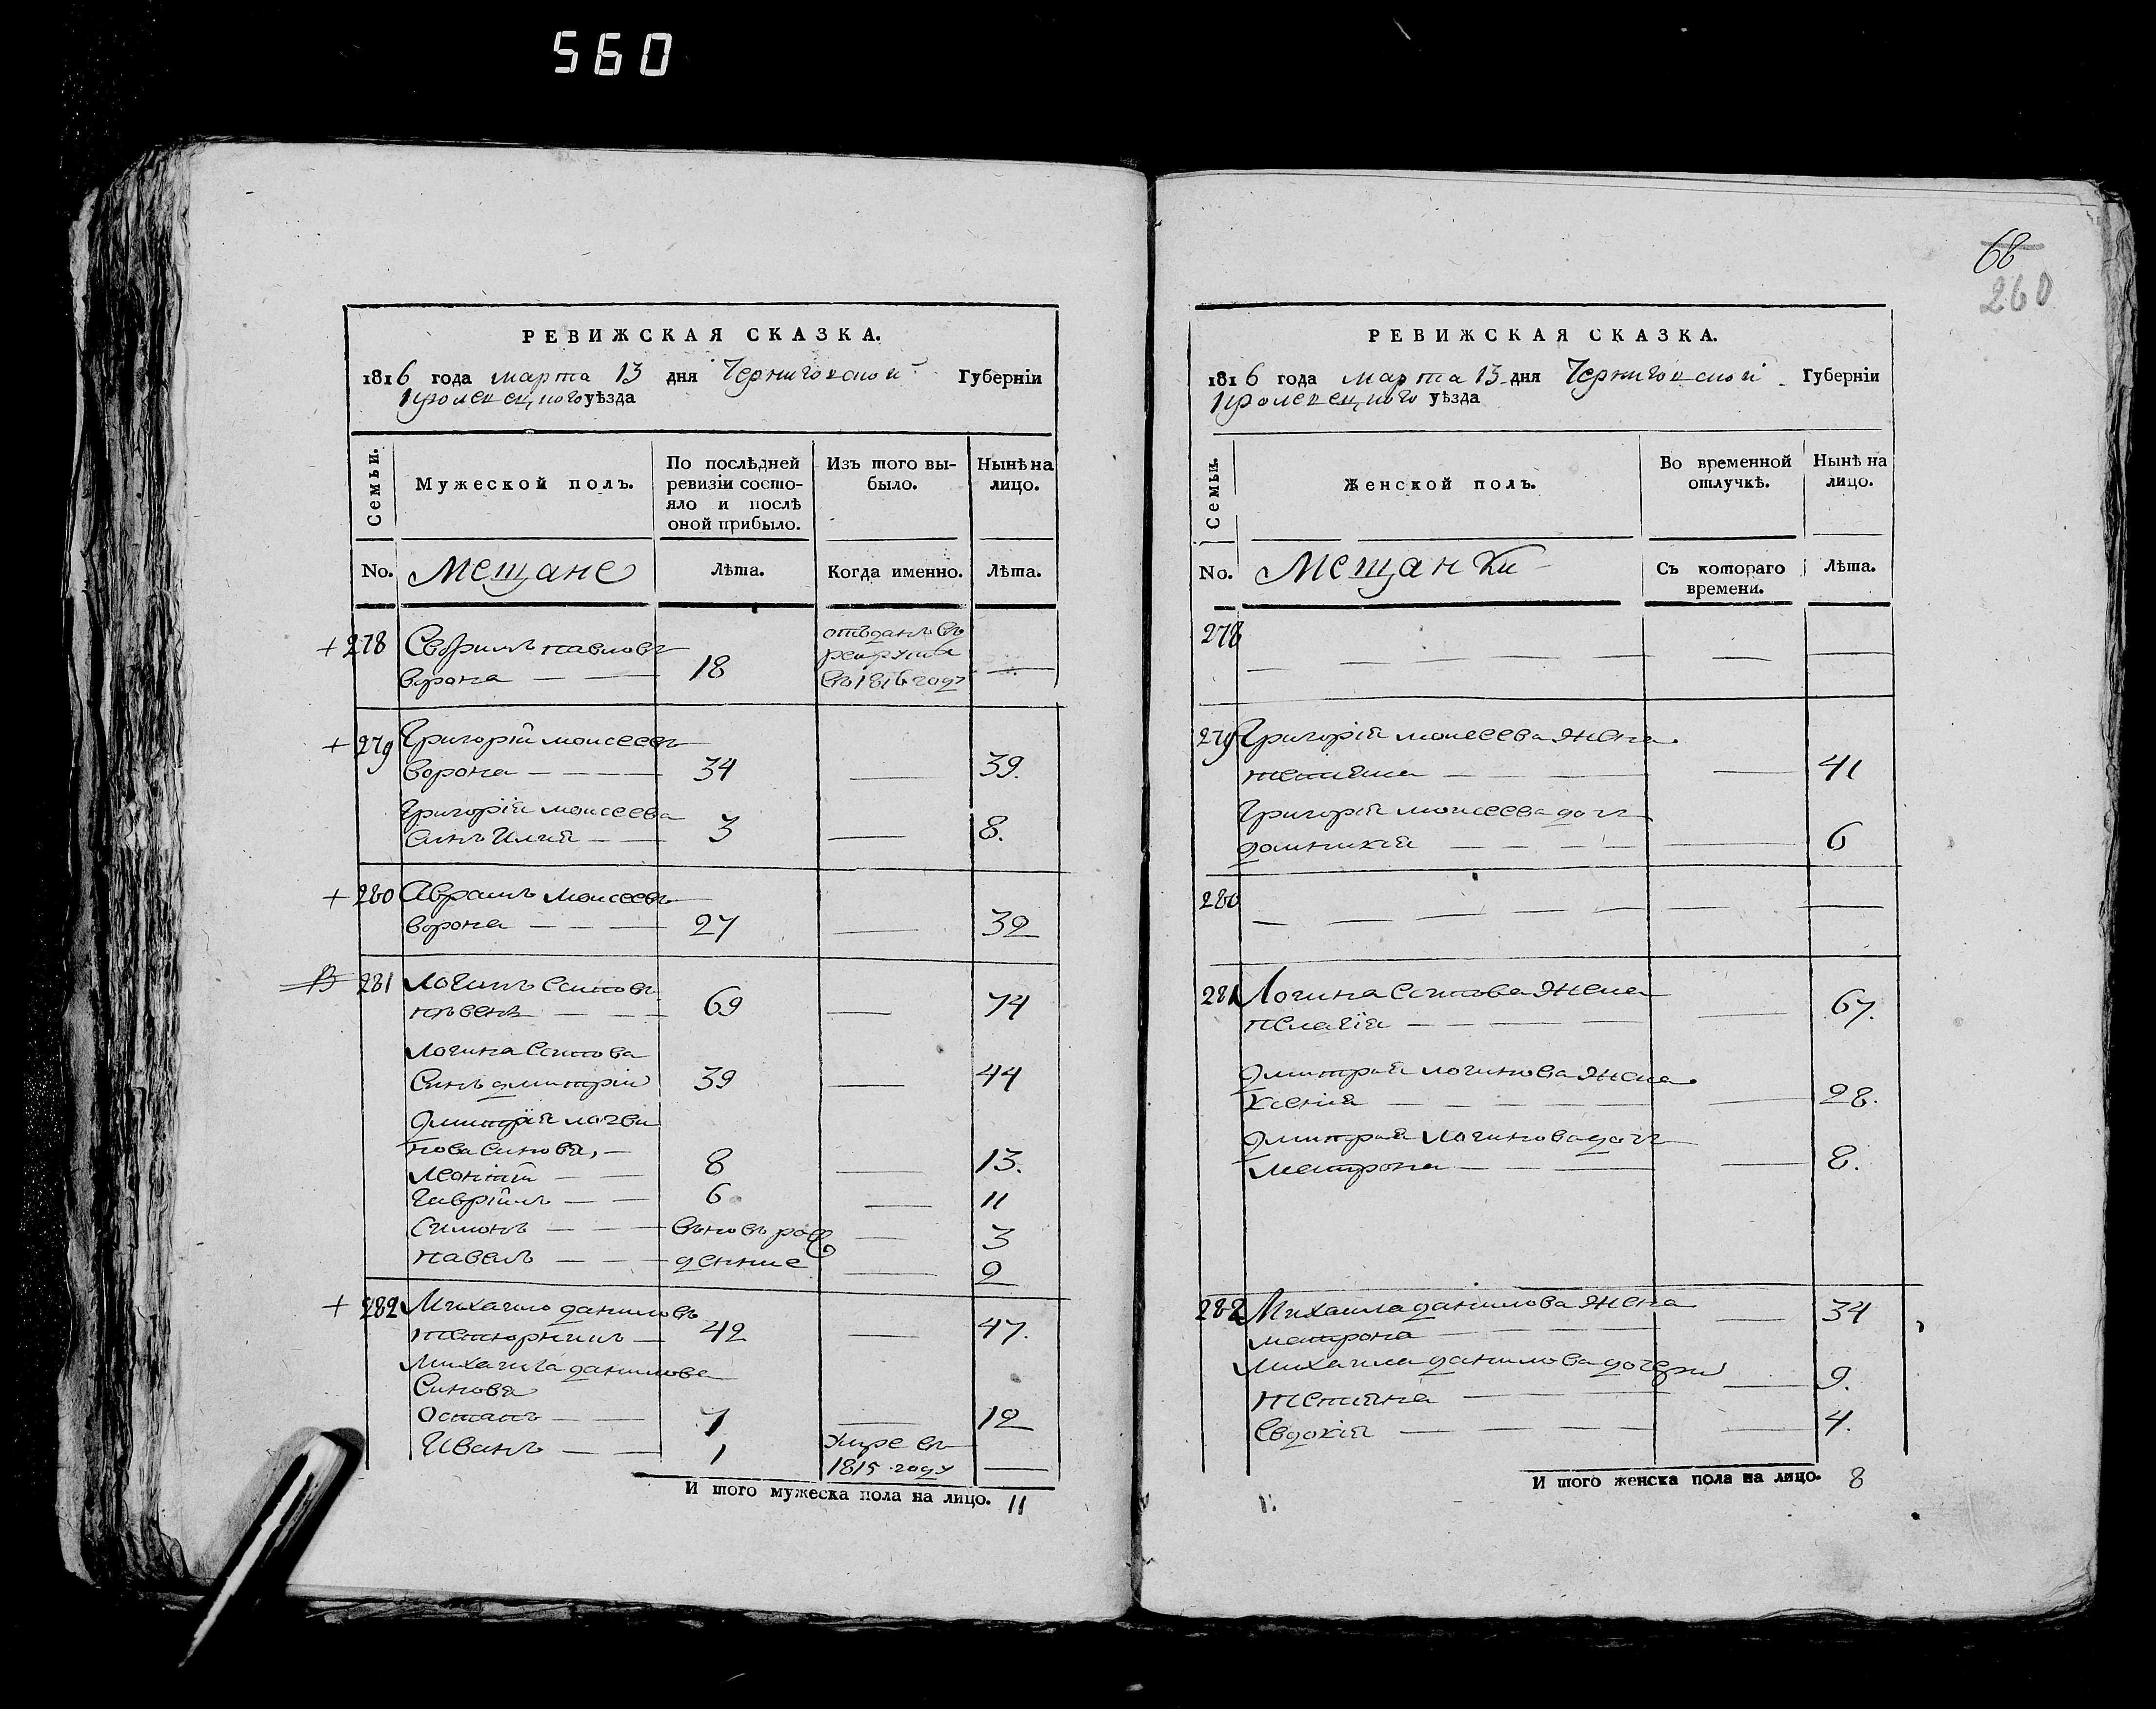 560
РЕВИЖСКАЯ СКАЗКА.
1816 года марта 13 дня Черниговской Губерніи
уѣзда
Семьи.
Мужеской полъ.
По послѣдней ревизіи состо-
яло и послѣ
оной прибыло.
Изъ того вы-
было.
Нынѣ на
лицо.
No.
Мещане
Лѣта.
Когда именно.
Лѣта.
+ 278 павловъ
отъданъ въ
рекруты
ворона — — 18 въ 1816 году —
+ 279 Григорій моисеевъ
ворона — — — 34 — 39.
Григорія моисеева
синъ Илия — — 3 — 8.
+ 280 Аврамъ моисеевъ
ворона — — — 27 — 32
281 Логинъ
69 — 74
Логина
Синъ дмитрій 39 — 44
Дмитрія логви
нова синова, —
Леонтій — — 8 — 13.
Гаврійлъ — — 6 — 11
Симонъ — — въновь рож — 3
павелъ — — денние — 2
+ 282 Михаило даниловъ
— 42 — 47.
Михаила данилова
Синова
Остапъ — — 7 — 12
Иванъ — — 1 умре въ
1815 году —
И того мужеска пола на лицо. 11
68
260
РЕВИЖСКАЯ СКАЗКА.
1816 года марта 13 дня Черниговской Губерніи
уѣзда
Семьи.
Женской полъ.
Во временной
отлучкѣ.
Нынѣ на
лицо.
No.
Мещанки
Съ котораго
времени.
Лѣта.
278
— — — — — — — —
279 Григорія моисеева жена
— — — — 41
Григорія моисеева дочь
домникія — — — — — 6
280
— — — — — — — —
281 Логина жена
пелагія — — — — — 67.
Дмитрия логинова жена
Ксенія — — — — — — 28.
Дмитрия Логинова дочь
матрона — — — — 8.
282 Михаила данилова жена
матрона — — — — — 34
Михаила данилова дочери
тетияна — — — — 9.
Евдокія — — — — — 4.
И того женска пола на лицо. 8